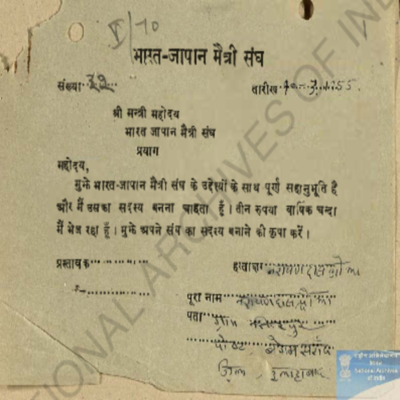 V/70
भारत-जापान मैत्री संघ
संख्या ३२
तारीख 55
श्री मन्त्री महोदय
भारत जापान मैत्री संघ
प्रयाग
महोदय,
मुझे भारत-जापान मैत्री संघ के उद्देश्यों के साथ पूर्ण सहानुभूति है
और मैं उसका सदस्य बनना चाहता हूँ। तीन रुपया वार्षिक चन्दा
मैं भेज रहा हूँ। मुझे अपने संघ का सदस्य बनाने की कृपा करें।
प्रस्तावक
हस्ताक्षर नारायण दास
पूरा नाम नारायण दास
पता ग्राम
पोस्ट बेगम सराय
जिला इलाहाबाद
NATIONAL ARCHIVES OF INDIA
राष्ट्रीय अभिलेखागार
National Archives